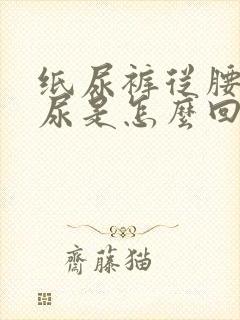 纸尿裤从腰
尿是怎麼回
齋藤猫